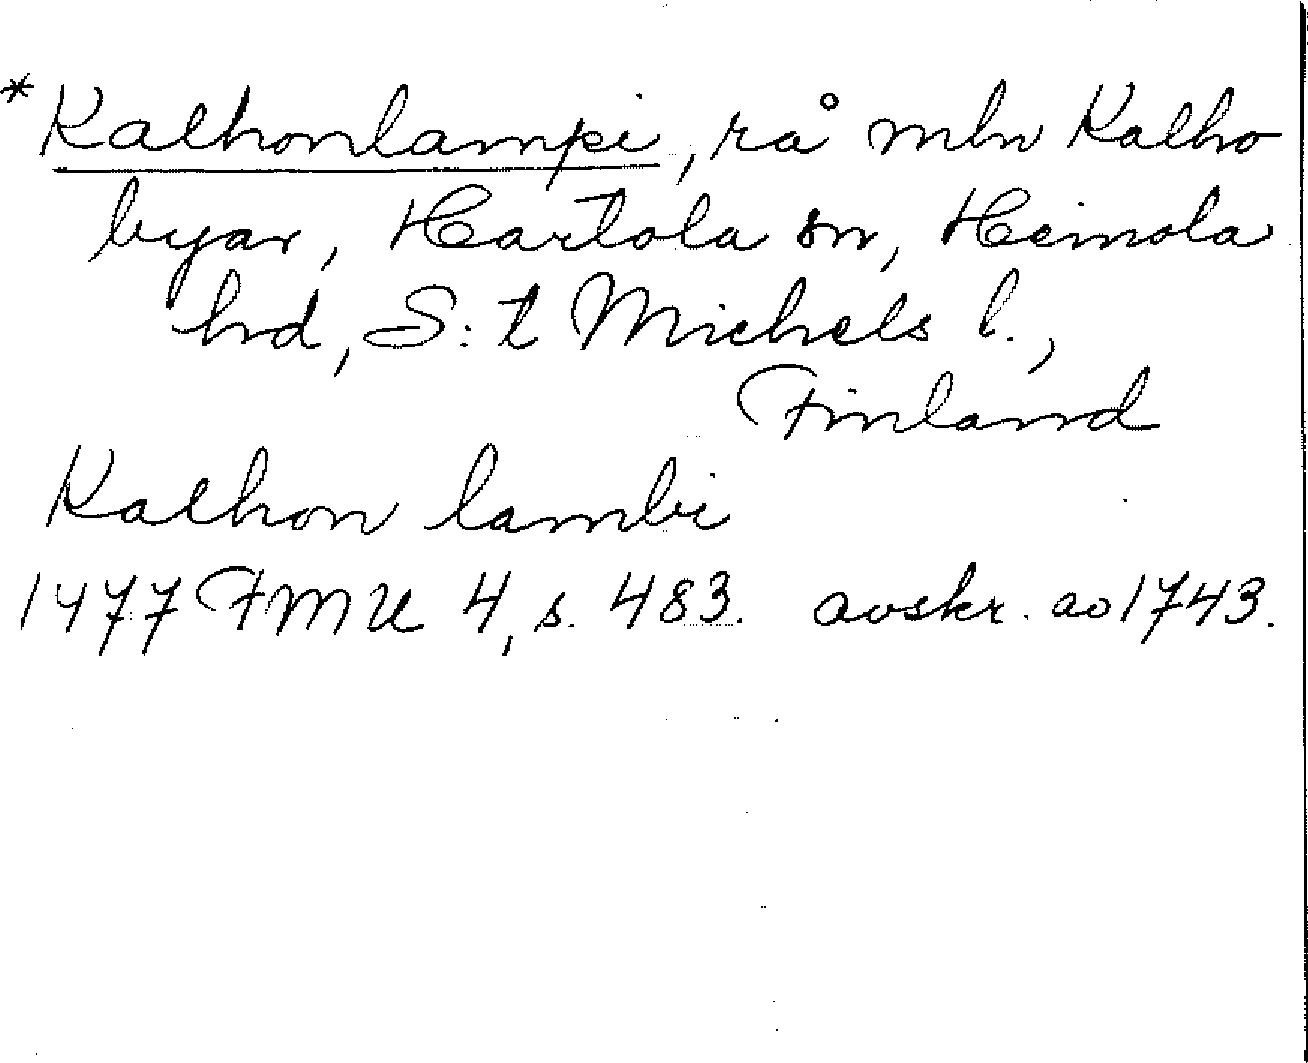 *Kalhonlampi, rå mln Kalho
byar, Hartola sn, Heinola
hd, S:t Michels l.,
Finland
Kalhon lambi
1477 FMU 4, s. 483. avskr. av 1743.